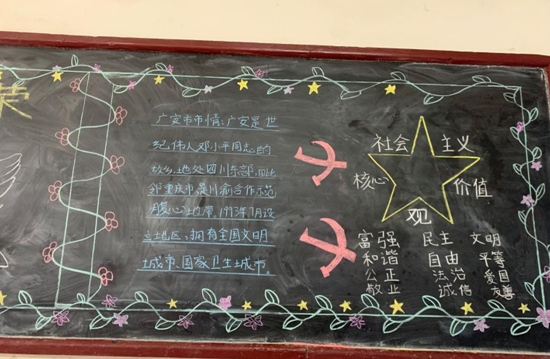 荣
广安市市情:广安是世
纪伟人邓小平同志的
故乡,地处四川东部,毗
邻重庆市,是川渝合作示范
腹心地带,1993年7月设
立地区,拥有全国文明
城市、国家卫生城市。
社会 主义
核心 价值
观
富强 民主 文明
和谐 自由 平等
公正 法治 爱国
敬业 诚信 友善